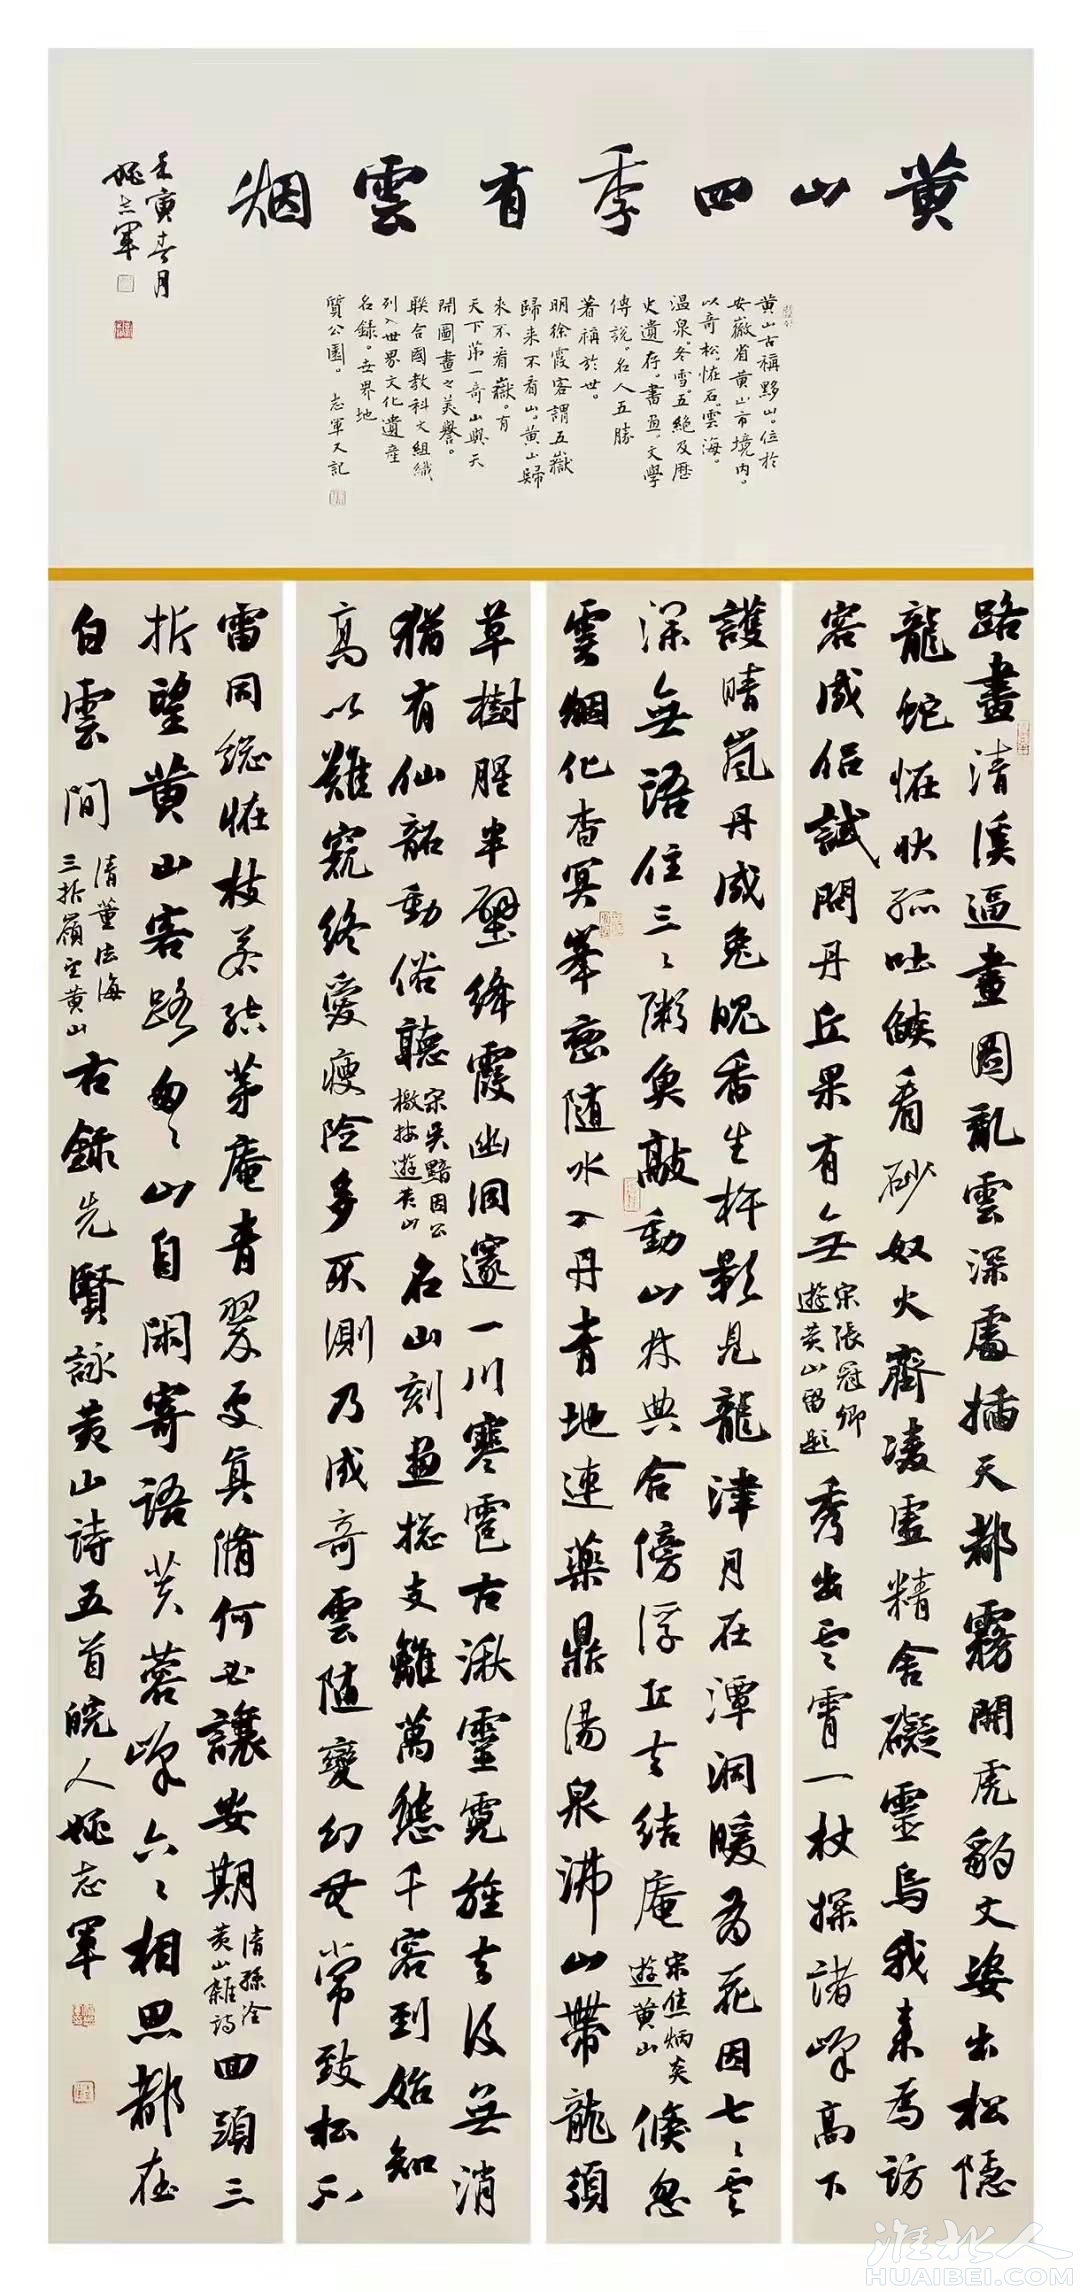 黄山四季有雲烟
黄山古稱黟山。位於
安徽省黄山市境内。
以奇松。怪石。雲海。
温泉。冬雪。五絶及歷
史遺存。書画。文學
傳説。名人五勝
著稱於世。
明徐霞客謂五嶽
歸来不看山。黄山歸
來不看嶽。有
天下第一奇山與天
開圖畫之美譽。
聯合國教科文組織
列入世界文化遺產
名録。世界地
質公園。志軍又記
壬寅春月
姚志軍
路盡清溪逼畫圖亂雲深處插天都霧開虎豹文姿出松隱
龍蛇怪狀孤吐焰看砂奴火齊凌虚精舍礙靈烏我来為訪
容成侣試問丹丘果有無
宋張冠卿
遊黄山留題
秀出雲霄一杖探諸峰高下
護晴嵐丹成兔魄香生杵影見龍津月在潭洞暖為花因七七雲
深無語住三三粥魚敲動山林典合傍浮丘去結庵
宋焦炳炎
遊黄山
倏忽
雲烟化杳冥峯巒随水入丹青地連藥鼎湯泉沸山帶龍須
草樹腥半壁絳霞幽洞邃一川寒雹古湫靈霓旌去後無消
猶有仙韶動俗聽
宋吴黯因公
檄按遊黄山
名山刻畫摠支離萬態千容到始知
高以難窺終愛瘦險多不測乃成奇雲随變幻無常致松不
雷同總怪枝茶結茅庵青翠処真脩何必讓安期
清孫洤
黄山雜诗
回頭三
折望黄山客路匆匆山自閑寄語芙蓉峰六六相思都在
白雲間
清董法海
三折嶺望黄山
右録先賢詠黄山詩五首皖人姚志軍
淮北人
HUAIBEI.COM